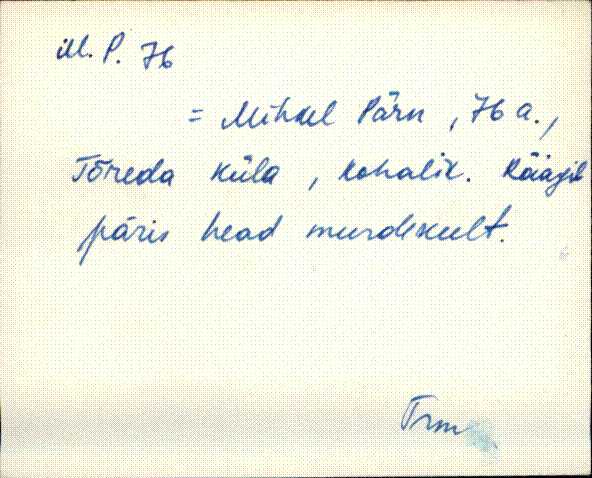 M. P. 76
= Mihkel Pärn, 76 a.,
Tõreda küla, kohalik. Räägib
päris head murdekeelt.
Trm